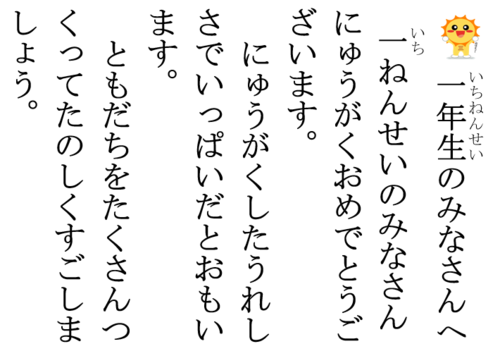 一年生のみなさんへ
いちねんせい
一ねんせいのみなさん
いち
にゅうがくおめでとうご
ざいます。
にゅうがくしたうれし
さでいっぱいだとおもい
ます。
ともだちをたくさんつ
くってたのしくすごしま
しょう。